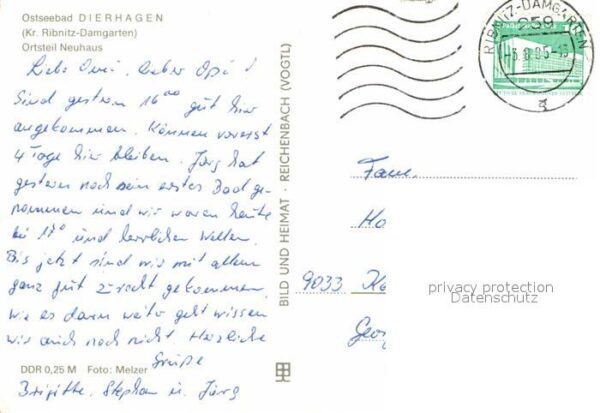 Ostseebad DIERHAGEN
(Kr. Ribnitz-Damgarten)
Ortsteil Neuhaus
Liebe Omi, lieber Opi!
Sind gestern 16⁰⁰ gut hier
angekommen. Können vorerst
4 Tage hier bleiben. Jörg hat
gestern noch sein erstes Bad ge-
nommen und wir waren heute
bei 17° und herrlichen Wellen.
Bis jetzt sind wir mit allem
ganz gut zurecht gekommen,
wie es dann weiter geht wissen
wir auch noch nicht. Herzliche
Grüße
Brigitte, Stephan u. Jörg
DDR 0,25 M Foto: Melzer
BILD UND HEIMAT · REICHENBACH (VOGTL)
RIBNITZ-DAMGARTEN
259
a
Fam.
Ho
9033 Ka
Geor
privacy protection
Datenschutz